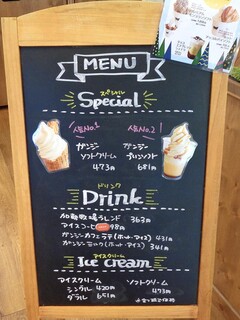 MENU
スペシャル
Special
人気No.1
人気No.2
ガンジー
ソフトクリーム
473円
ガンジー
プリンソフト
681円
ドリンク
Drink
加勢牧場ブレンド 363円
アイスコーヒー 98円
ガンジーカフェラテ(ホット・アイス) 431円
ガンジーミルク(ホット・アイス) 341円
アイスクリーム
Ice cream
アイスクリーム
シングル 420円
ダブル 651円
ソフトクリーム
473円